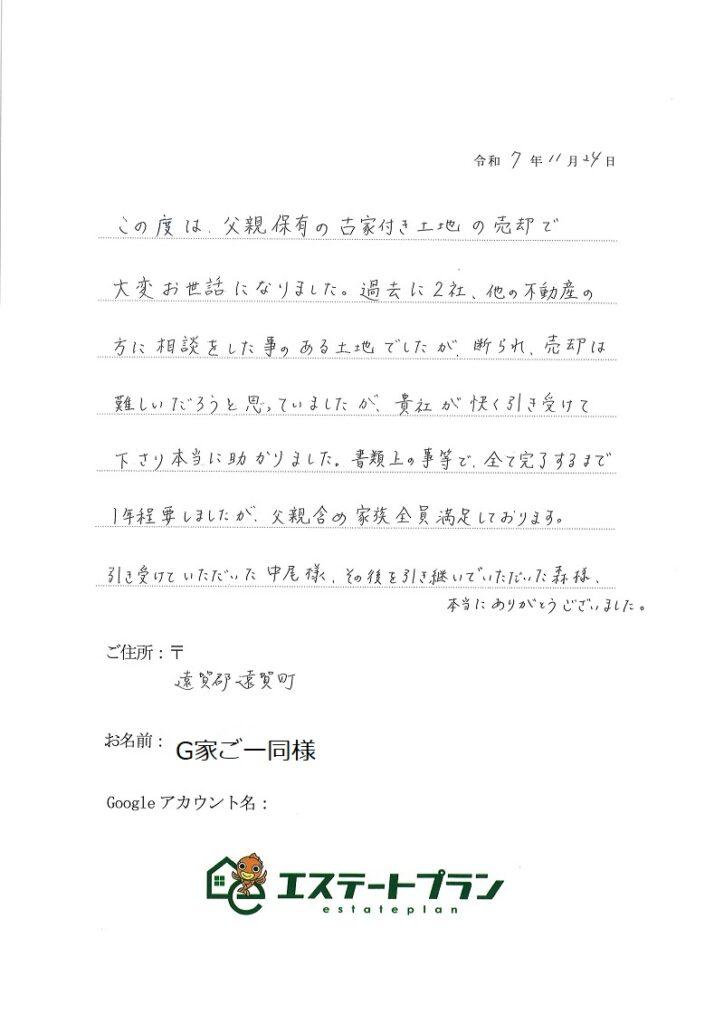 令和 7 年 11 月 24 日
この度は、父親保有の古家付き土地の売却で
大変お世話になりました。過去に2社、他の不動産の
方に相談をした事のある土地でしたが、断られ、売却は
難しいだろうと思っていましたが、貴社が快く引き受けて
下さり本当に助かりました。書類上の事等で、全て完了するまで
1年程要しましたが、父親含め家族全員満足しております。
引き受けていただいた中尾様、その後を引き継いでいただいた森様、
本当にありがとうございました。
ご住所：〒
遠賀郡遠賀町
お名前： G家ご一同様
Google アカウント名：
エステートプラン
estateplan